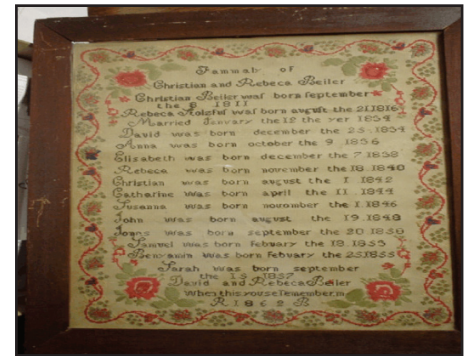 Fammah of
Christian and Rebeca Beiler
Christian Beiler was born september
the 6 1811
Rebeca was born august the 21 1816
Married January the 12 the yer 1834
David was born december the 25 1834
Anna was born october the 9 1836
Elisabeth was born december the 7 1838
Rebeca was born november the 18 1840
Christian was born august the 1 1842
Catharine was born april the 11 1844
Susanna was born november the 1 1846
John was born august the 19 1848
Jonas was born september the 20 1850
Samuel was born febuary the 18 1853
Benyamin was born febuary the 25 1855
Sarah was born september
the 13 1857
David and Rebeca Beiler
When this you se remember m
R 1862 B